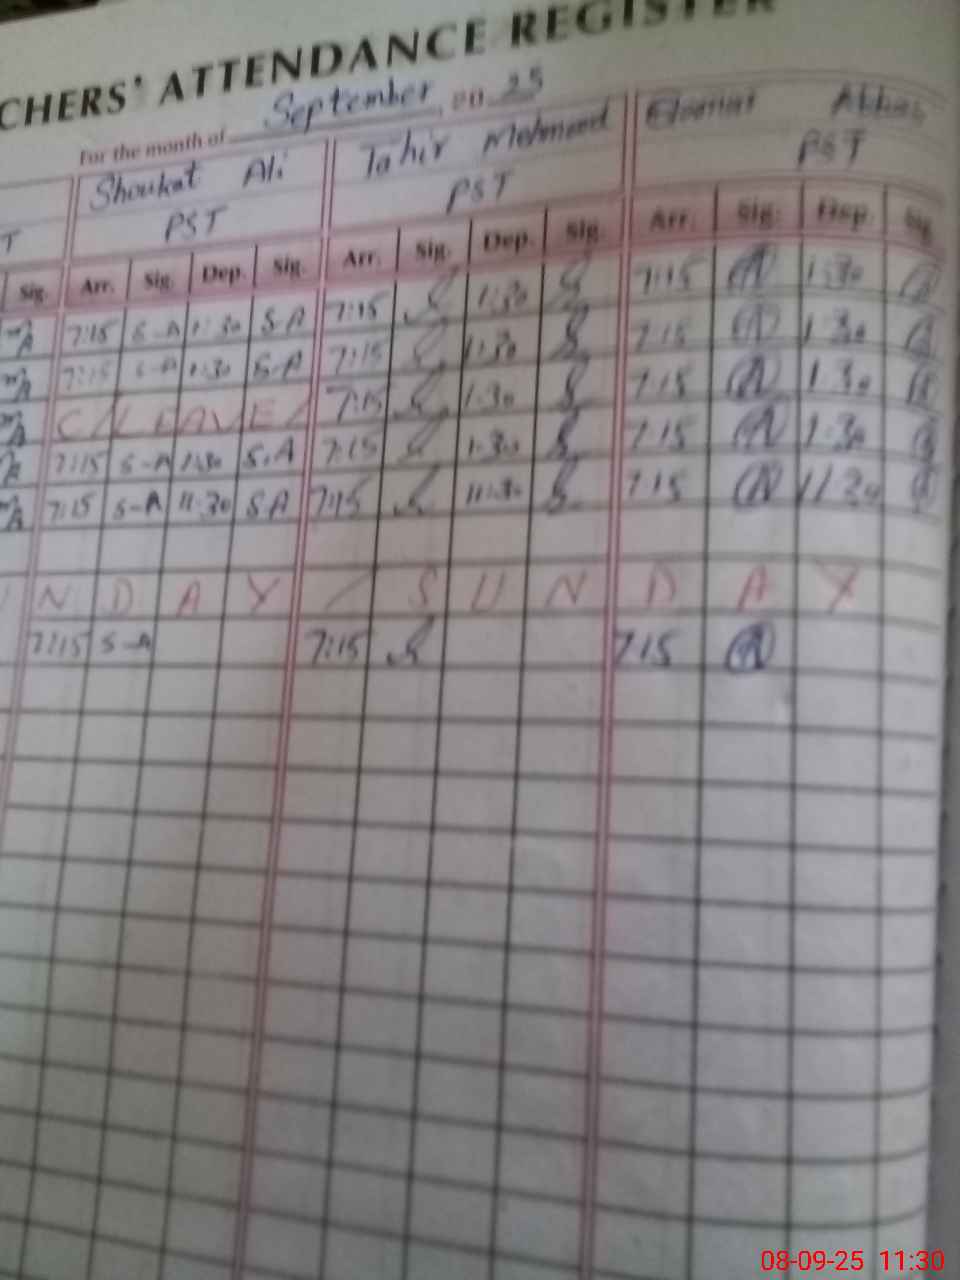 CHERS' ATTENDANCE REGISTER
For the month of September, 20 25
Shoukat Ali Tahir Mehmood Abbas
T PST PST PST
Sig. Arr. Sig. Dep. Sig. Arr. Sig. Dep. Sig. Arr. Sig. Dep. Sig.
7:15 S-A 1:30 S-A 7:15 1:30 7:15 1:30
7:15 S-A 1:30 S-A 7:15 1:30 7:15 1:30
C/LEAVE/ 7:15 1:30 7:15 1:30
7:15 S-A 1:30 S.A 7:15 1:30 7:15 1:30
7:15 S-A 11:30 SA 7:15 11:30 7:15 11:30
N D A Y / S U N D A Y
7:15 S-A 7:15 7:15
08-09-25 11:30